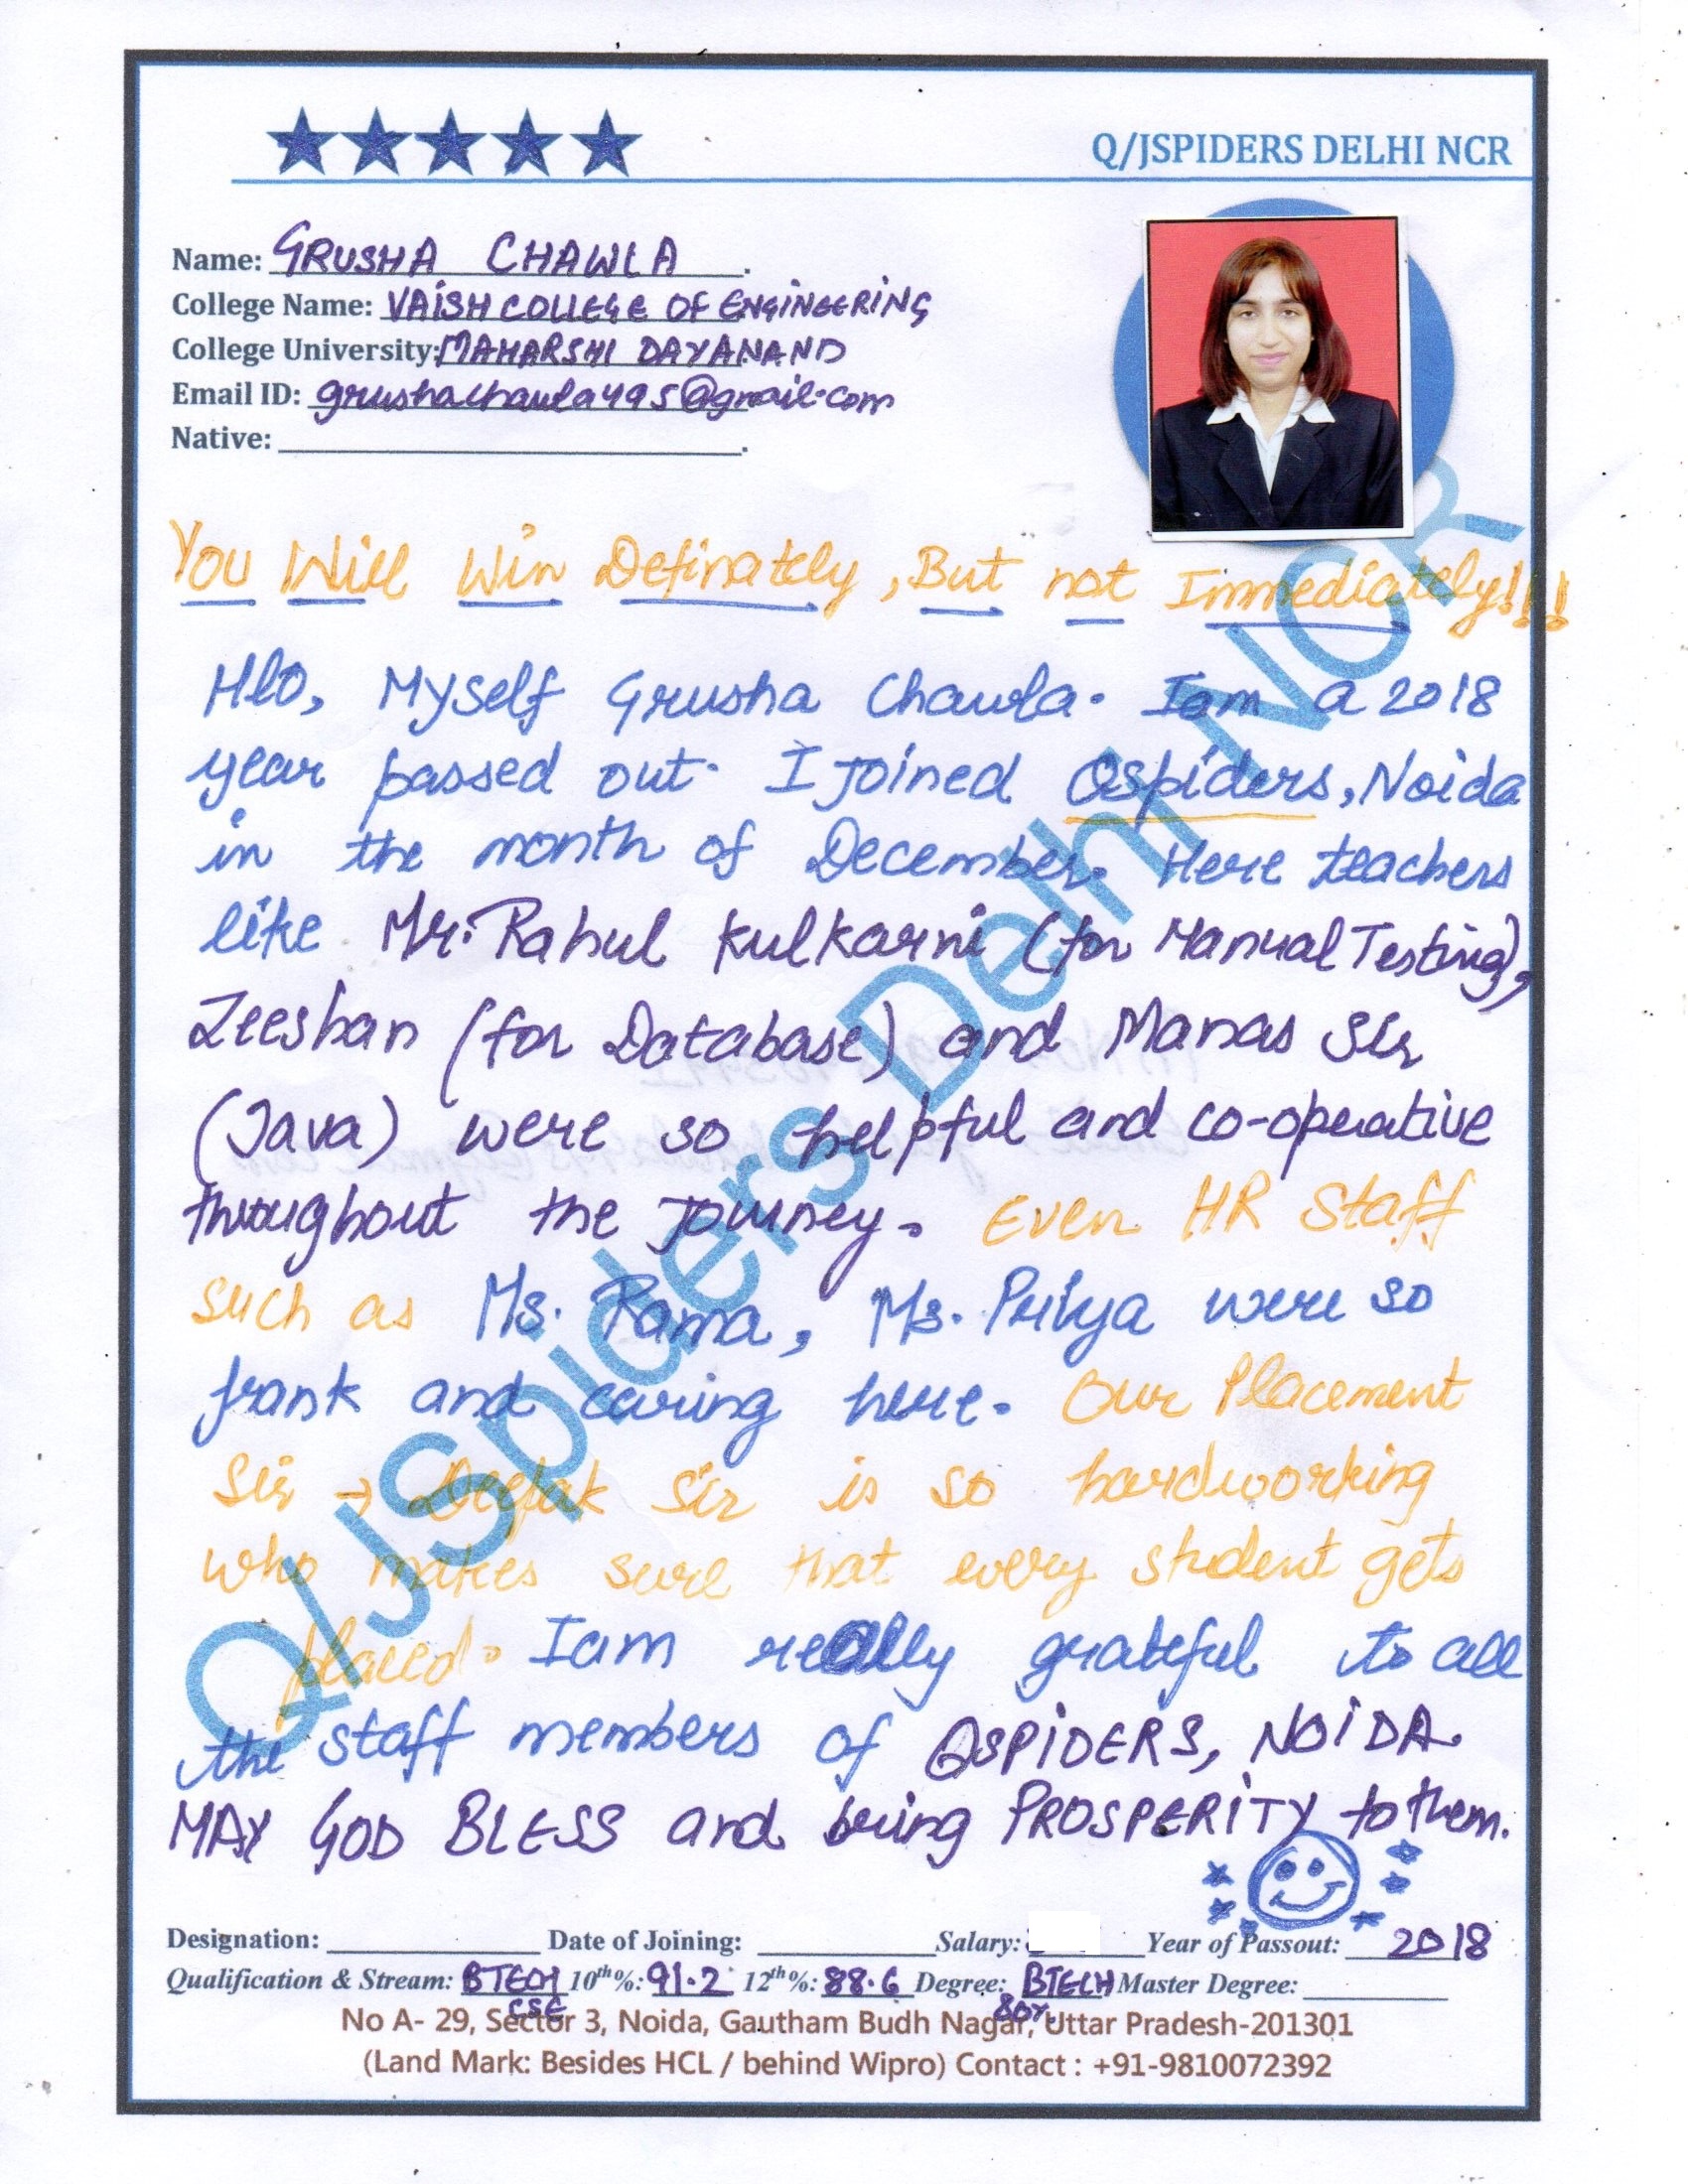 Q/JSPIDERS DELHI NCR
Name: GRUSHA CHAWLA
College Name: VAISH COLLEGE OF ENGINEERING
College University: MAHARSHI DAYANAND
Email ID: grushachawla495@gmail.com
Native:
You Will Win Definately, But not Immediately!!!
Hlo, Myself Grusha Chawla. Iam a 2018
year passed out. I joined Qspiders, Noida
in the month of December. Here teachers
like Mr. Rahul Kulkarni (for Manual Testing),
Zeeshan (for Database) and Manas Sir
(Java) were so helpful and co-operative
throughout the journey. Even HR Staff
such as Ms. Rama, Ms. Priya were so
frank and caring here. Our Placement
Sir → Deepak Sir is so hardworking
who makes sure that every student gets
placed. Iam really grateful to all
the staff members of QSPIDERS, NOIDA.
MAY GOD BLESS and bring PROSPERITY to them.
Designation: Date of Joining: Salary: Year of Passout: 2018
Qualification & Stream: BTECH CSE 10th%: 91.2 12th%: 88.6 Degree: BTECH 80%. Master Degree:
No A- 29, Sector 3, Noida, Gautham Budh Nagar, Uttar Pradesh-201301
(Land Mark: Besides HCL / behind Wipro) Contact : +91-9810072392
Q/JSpiders Delhi NCR